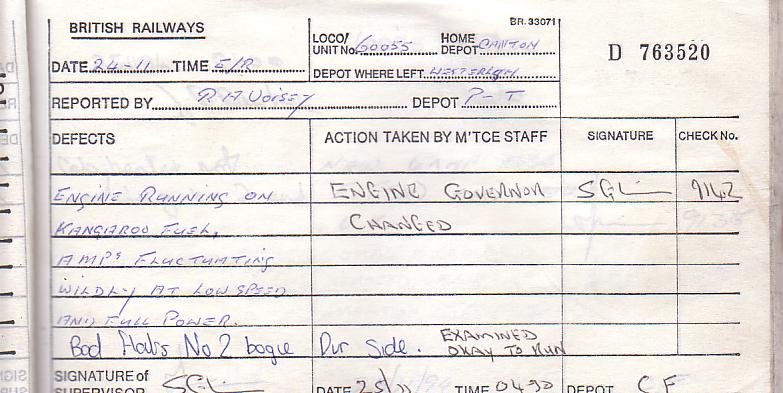 BRITISH RAILWAYS
BR. 33071
LOCO/ UNIT No. 60055 HOME DEPOT CANTON
D 763520
DATE 24-11 TIME E/R
DEPOT WHERE LEFT WESTERLEIGH
REPORTED BY R A Voisey DEPOT P-T
DEFECTS ACTION TAKEN BY M'TCE STAFF SIGNATURE CHECK No.
ENGINE RUNNING ON ENGINE GOVERNOR 9142
KANGAROO FUEL, CHANGED
AMPS FLUCTUATING
WILDLY AT LOW SPEED
AND FULL POWER.
Bad No 2 bogie Dvr Side. EXAMINED OKAY TO RUN
SIGNATURE of SUPERVISOR DATE 25/11 TIME 0430 DEPOT CF